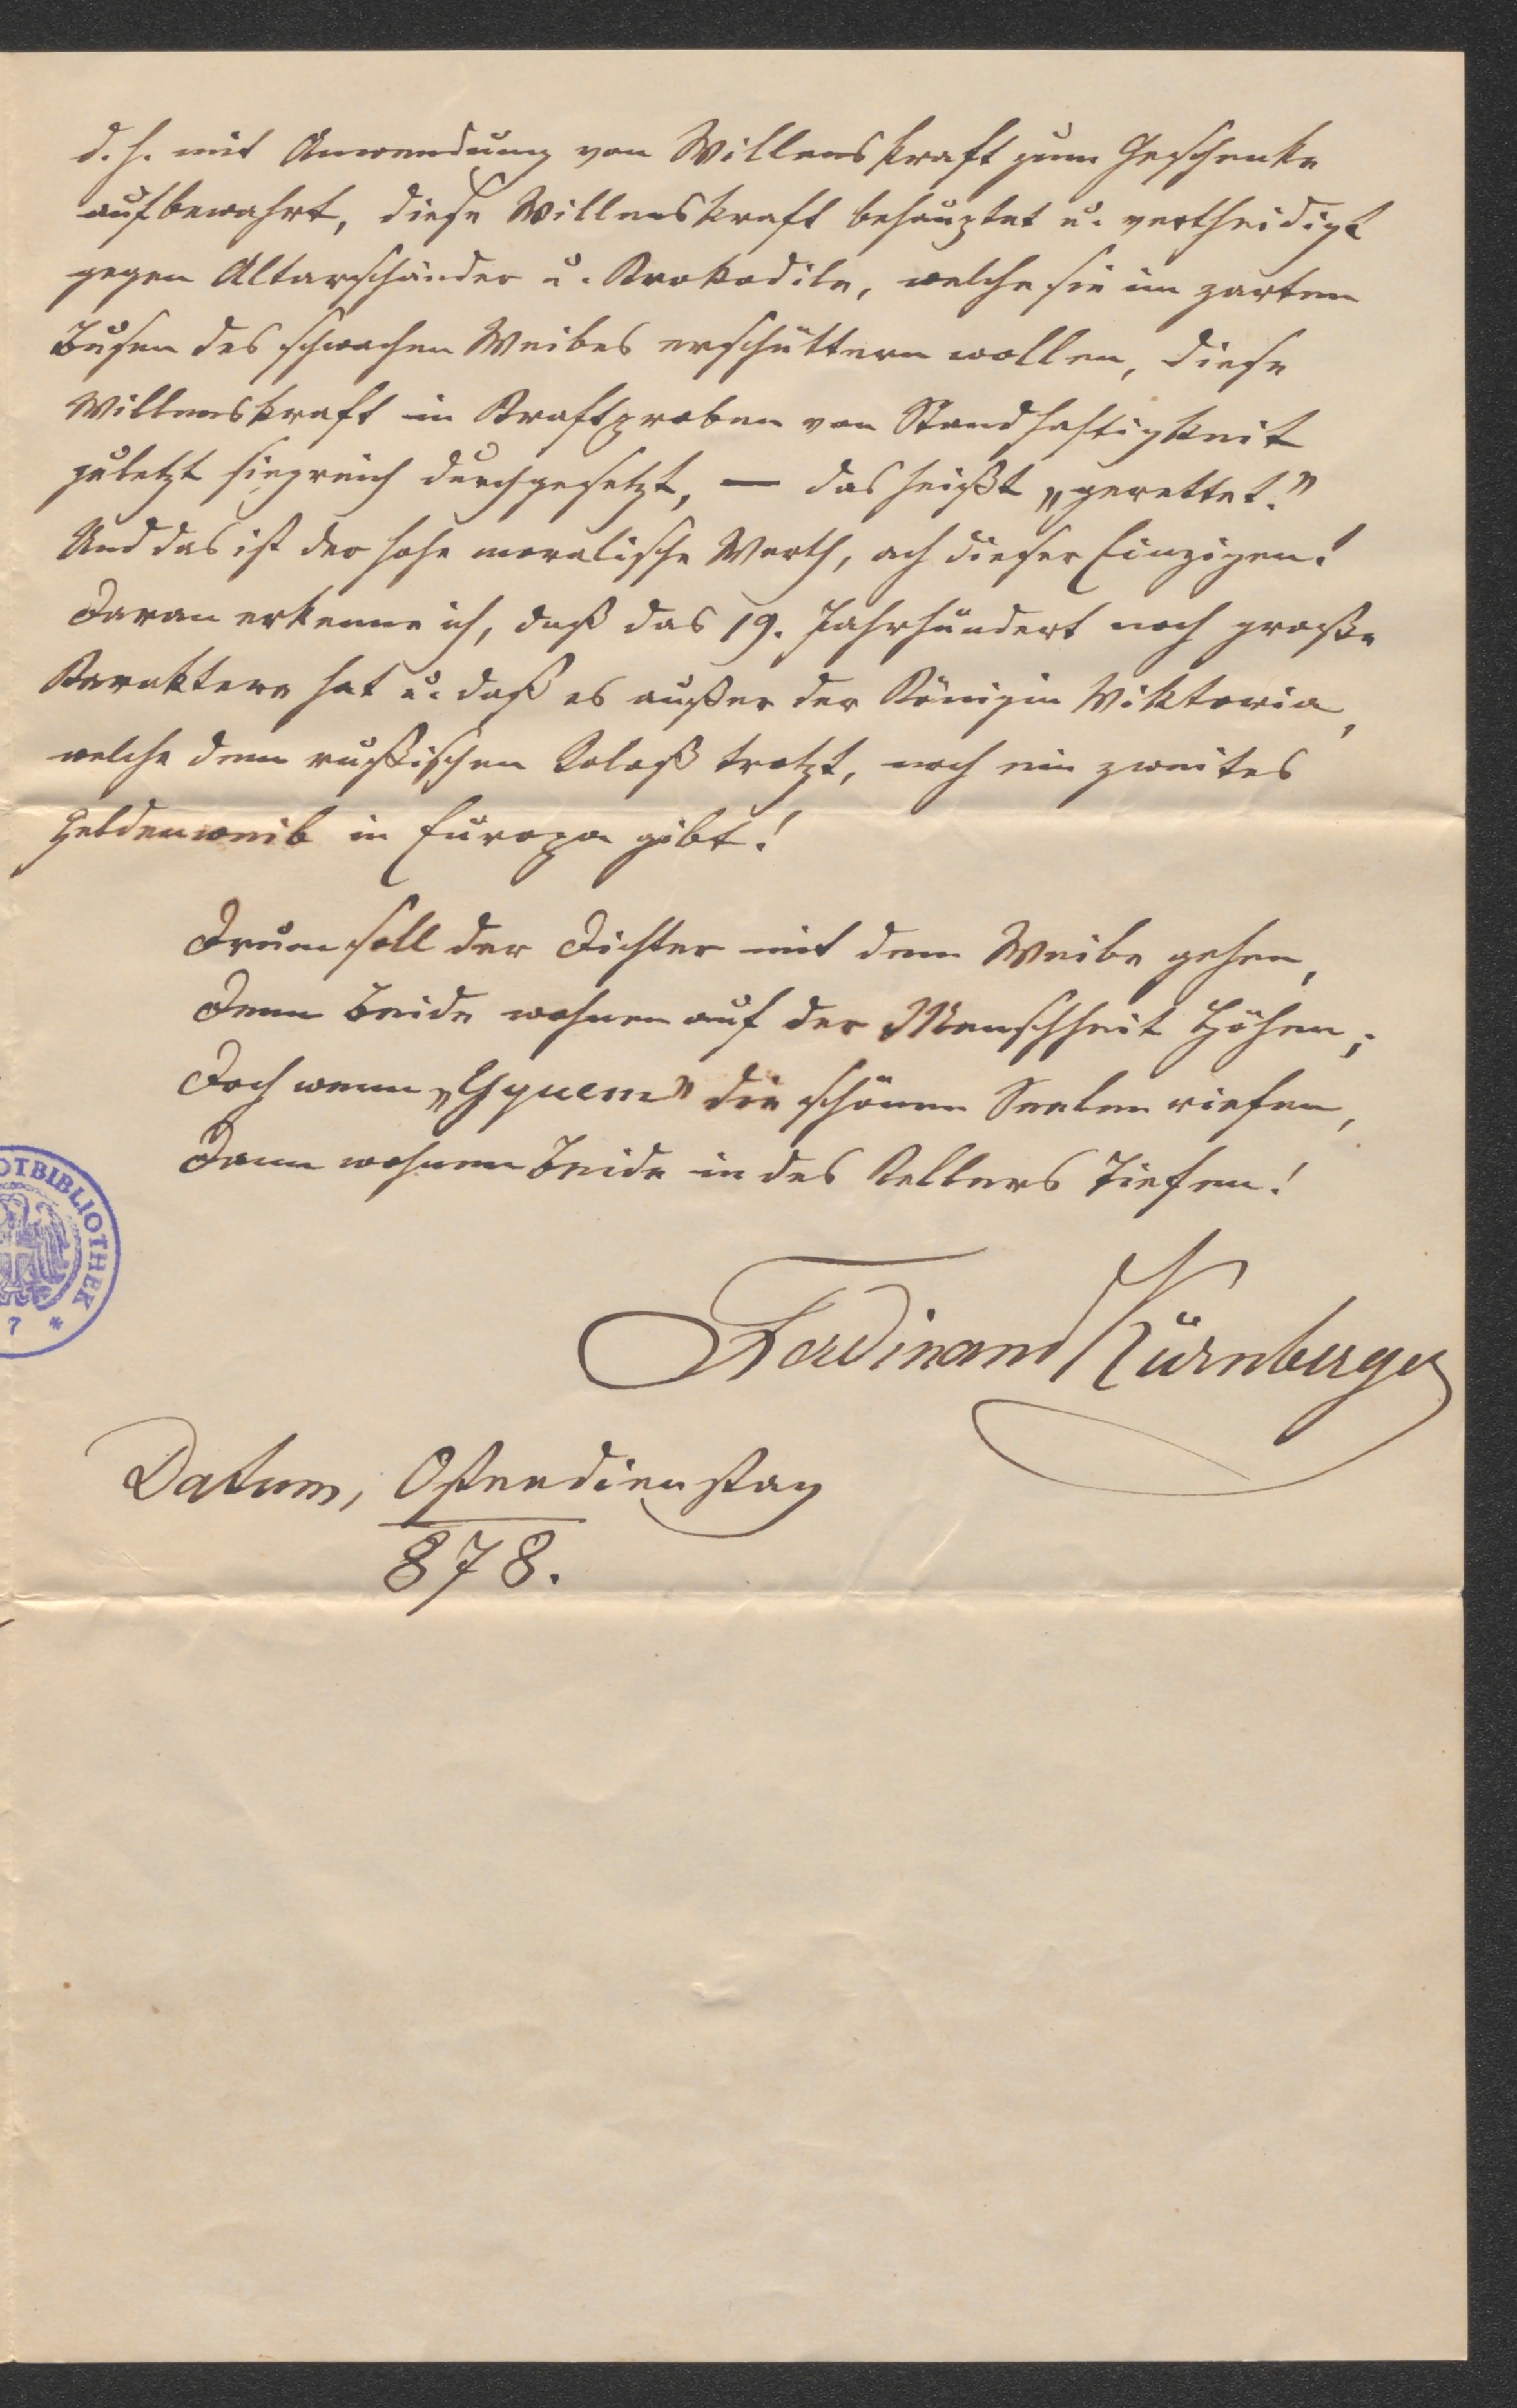 d. h. mit Anwendung von Willenskraft zum Geschenke
aufbewahrt, diese Willenskraft behauptet u. vertheidigt
gegen Altarschänder u. Krokodile, welche sie im zarten
Busen des schwachen Weibes erschüttern wollen, diese
Willenskraft in Kraftproben von Standhaftigkeit
zuletzt siegreich durchgesetzt, — das heißt „gerettet."
Und das ist der hohe moralische Werth, ach dieser Einzigen!
Daran erkenne ich, daß das 19. Jahrhundert noch große
Karaktere hat u. daß es außer der Königin Viktoria,
welche dem rußischen Koloß trotzt, noch ein zweites
Heldenweib in Europa gibt!
Drum soll der Dichter mit dem Weibe gehen,
Denn Beide wohnen auf der Menschheit Höhen;
Doch wenn „Yquem" die schönen Seelen riefen,
Dann wohnen Beide in des Kellers Tiefen!
OTBIBLIOTHEK
7 *
Ferdinand Kürnberger
Datum, Osterdienstag
878.